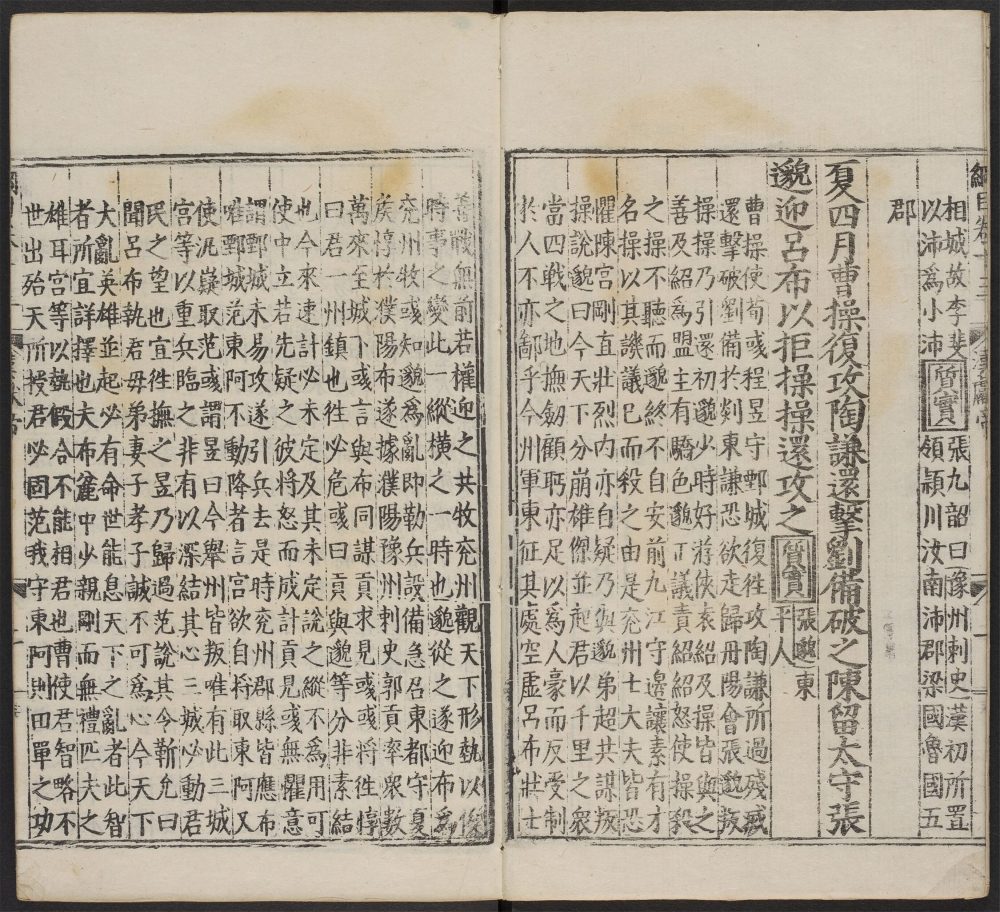 綱目卷十三
相城故李斐
以沛爲小沛
質實
張九韶曰豫州刺史漢初所置
領潁川汝南沛郡梁國魯國五
郡
夏四月曹操復攻陶謙還擊劉備破之陳留太守張
邈迎呂布以拒操操還攻之
質實
張邈東
平人
曹操使荀彧程昱守鄄城復徃攻陶謙所過殘滅
還擊破劉備於剡東謙恐欲走歸丹陽會張邈叛
操操乃引還初邈少時好游俠袁紹及操皆與之
善及紹爲盟主有驕色邈正議責紹紹怒使操殺
之操不聽而邈終不自安前九江守邊讓素有才
名操以其譏議已而殺之由是兖州士大夫皆恐
懼陳宮剛直壯烈内亦自疑乃與邈弟超共謀叛
操說邈曰今天下分崩雄傑並起君以千里之衆
當四戰之地撫劒顧眄亦足以爲人豪而反受制
於人不亦鄙乎今州軍東征其處空虛呂布壯士
善戰無前若權迎之共牧兖州觀天下形勢以俟
時事之變此一縱横之一時也邈從之遂迎布爲
兖州牧彧知邈爲亂即勒兵設備急召東都守夏
矦惇於濮陽布遂據濮陽豫州刺史郭貢率衆數
萬來至城下或言與布同謀貢求見彧彧將徃惇
曰君一州鎮也徃必危彧曰貢與邈等分非素結
也今來速計必未定及其未定說之縱不爲用可
使中立若先疑之彼將怒而成計貢見彧無懼意
謂鄄城未易攻遂引兵去是時兖州郡縣皆應布
唯鄄城范東阿不動降者言宮欲自將取東阿又
使汎嶷取范彧謂昱曰今舉州皆叛唯有此三城
宮等以重兵臨之非有以深結其心三城必動君
民之望也宜徃撫之昱乃歸過范說其令靳允曰
聞呂布執君母弟妻子孝子誠不可爲心今天下
大亂英雄並起必有命世能息天下之亂者此智
者所宜詳擇也夫布麄中少親剛而無禮匹夫之
雄耳宮等以勢假合不能相君也曹使君智略不
世出殆天所授君必固范我守東阿則田單之功